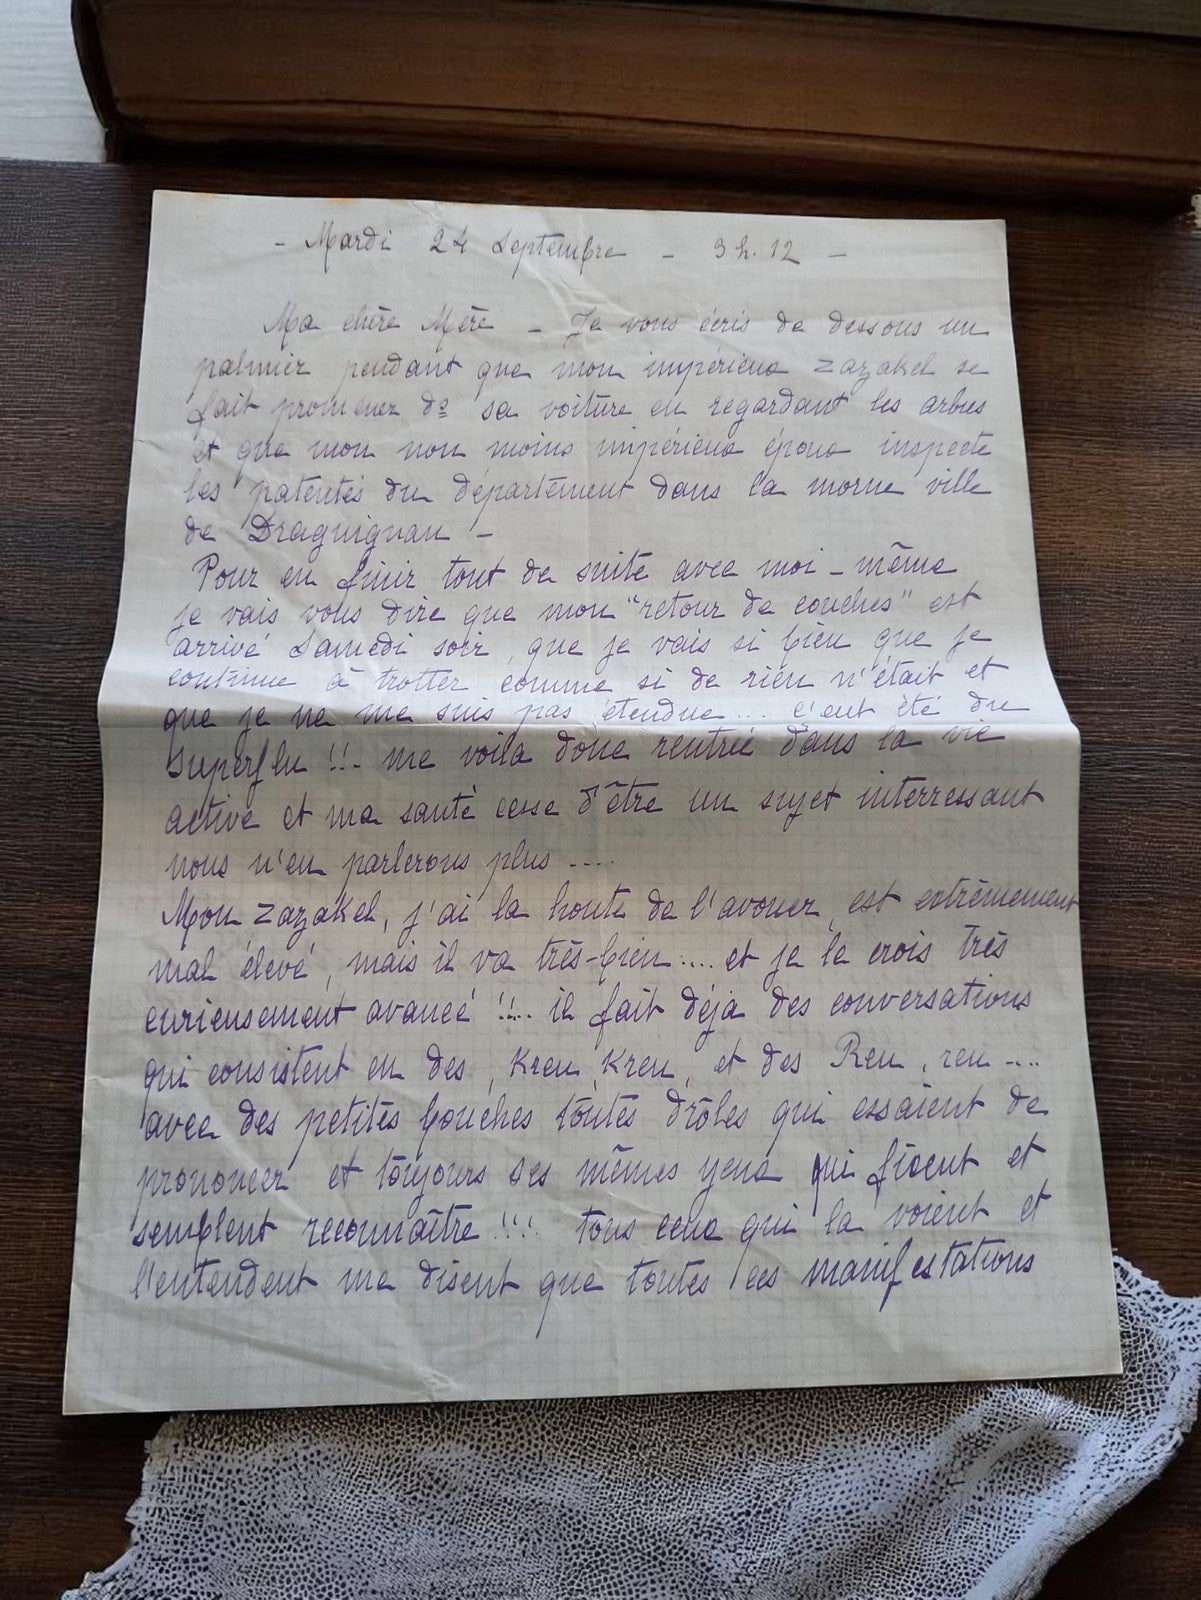 - Mardi 24 Septembre - 3 h. 12 -
Ma chère Mère - Je vous écris de dessous un
palmier pendant que mon impérieux zazakel se
fait promener ds sa voiture en regardant les arbres
et que mon non moins impérieux époux inspecte
les patentés du département dans la morne ville
de Draguignan -
Pour en finir tout de suite avec moi-même
je vais vous dire que mon "retour de couches" est
arrivé Samedi soir, que je vais si bien que je
continue à trotter comme si de rien n'était et
que je ne me suis pas étendue... c'eut été du
superflu !!- me voilà donc rentrée dans la vie
active et ma santé cesse d'être un sujet interressant
nous n'en parlerons plus ....
Mon zazakel, j'ai la honte de l'avouer, est extrêmement
mal élevé, mais il va très-bien.... et je le crois très
curieusement avancé !!... il fait déjà des conversations
qui consistent en des, Kreu, Kreu, et des Reu, reu ....
avec des petites bouches toutes drôles qui essaient de
prononcer et toujours ses mêmes yeux qui fixent et
semblent reconnaître !!!! tous ceux qui la voient et
l'entendent me disent que toutes ces manifestations